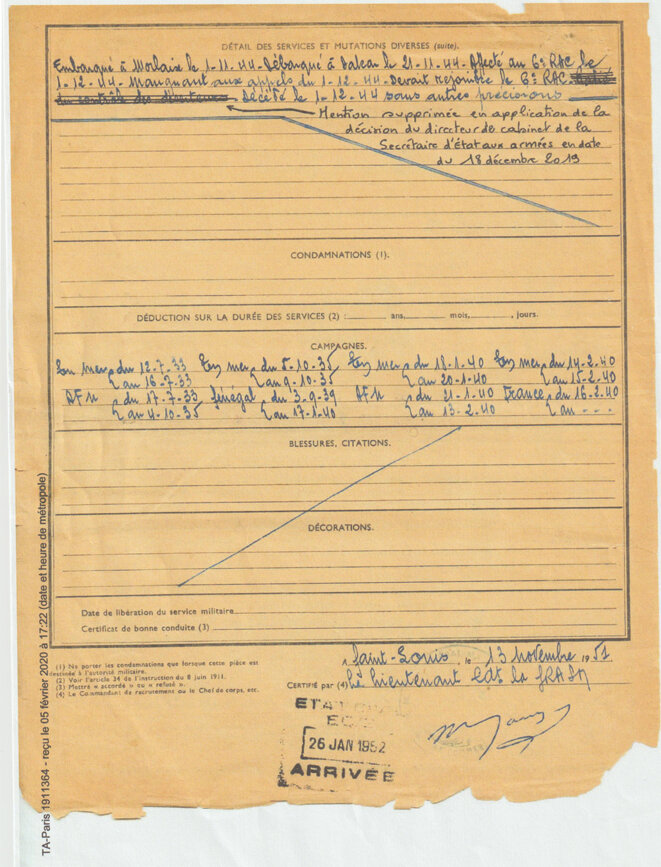 DÉTAIL DES SERVICES ET MUTATIONS DIVERSES (suite).
Embarqué à Morlaix le 1-11-44 - Débarqué à Dakar le 21-11-44 - Affecté au 6e RAC le
1-12-44 - Manquant aux appels du 1-12-44 - Devant rejoindre le 6e RAC
du contrôle des déserteurs - Décédé le 1-12-44 sans autres précisions
Mention supprimée en application de la
décision du directeur de cabinet de la
Secrétaire d'État aux armées en date
du 18 décembre 2019
CONDAMNATIONS (1).
DÉDUCTION SUR LA DURÉE DES SERVICES (2) : ans, mois, jours.
CAMPAGNES.
En mer du 12-7-33 En mer du 5-10-35 En mer du 18-1-40 En mer du 14-2-40
au 16-7-33 au 9-10-35 au 20-1-40 au 15-2-40
AFN du 17-7-33 Sénégal du 3-9-39 AFN du 21-1-40 France du 16-2-40
au 4-10-35 au 17-1-40 au 13-2-40 au - - -
BLESSURES, CITATIONS.
DÉCORATIONS.
Date de libération du service militaire
Certificat de bonne conduite (3)
(1) Ne porter les condamnations que lorsque cette pièce est
destinée à l'autorité militaire.
(2) Voir l'article 34 de l'instruction du 8 juin 1911.
(3) Mettre « accordé » ou « refusé ».
(4) Le Commandant de recrutement ou le Chef de corps, etc.
A Saint-Louis, le 13 novembre 1951
CERTIFIÉ par (4) Le lieutenant Cdt la
26 JAN 1952
ARRIVÉE
TA-Paris 1911364 - reçu le 05 février 2020 à 17:22 (date et heure de métropole)